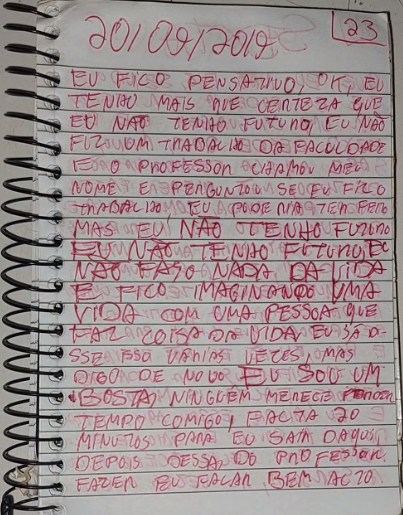 20/09/2019
23
EU FICO PENSATIVO, OK, EU
TENHO MAIS QUE CERTEZA QUE
EU NÃO TENHO FUTURO, EU NÃO
FIZ UM TRABALHO DA FACULDADE
E O PROFESSOR CHAMOU MEU
NOME E PERGUNTOU SE EU FIZ O
TRABALHO, EU PODERIA TER FEITO
MAS EU NÃO TENHO FUTURO
EU NÃO TENHO FUTURO, EU
NÃO FAÇO NADA DA VIDA
E FICO IMAGINANDO UMA
VIDA COM UMA PESSOA QUE
FAZ COISA DA VIDA, EU JÁ DI-
SSE ISSO VÁRIAS VEZES MAS
DIGO DE NOVO EU SOU UM
BOSTA, NINGUÉM MERECE PERDER
TEMPO COMIGO, FALTA 20
MINUTOS PARA EU SAIR DAQUI
DEPOIS DESSA, DO PROFESSOR
FAZER EU FALAR BEM ALTO